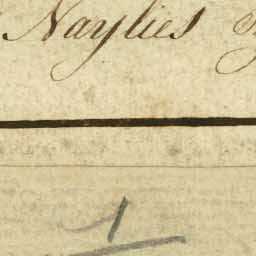 Naylies
1